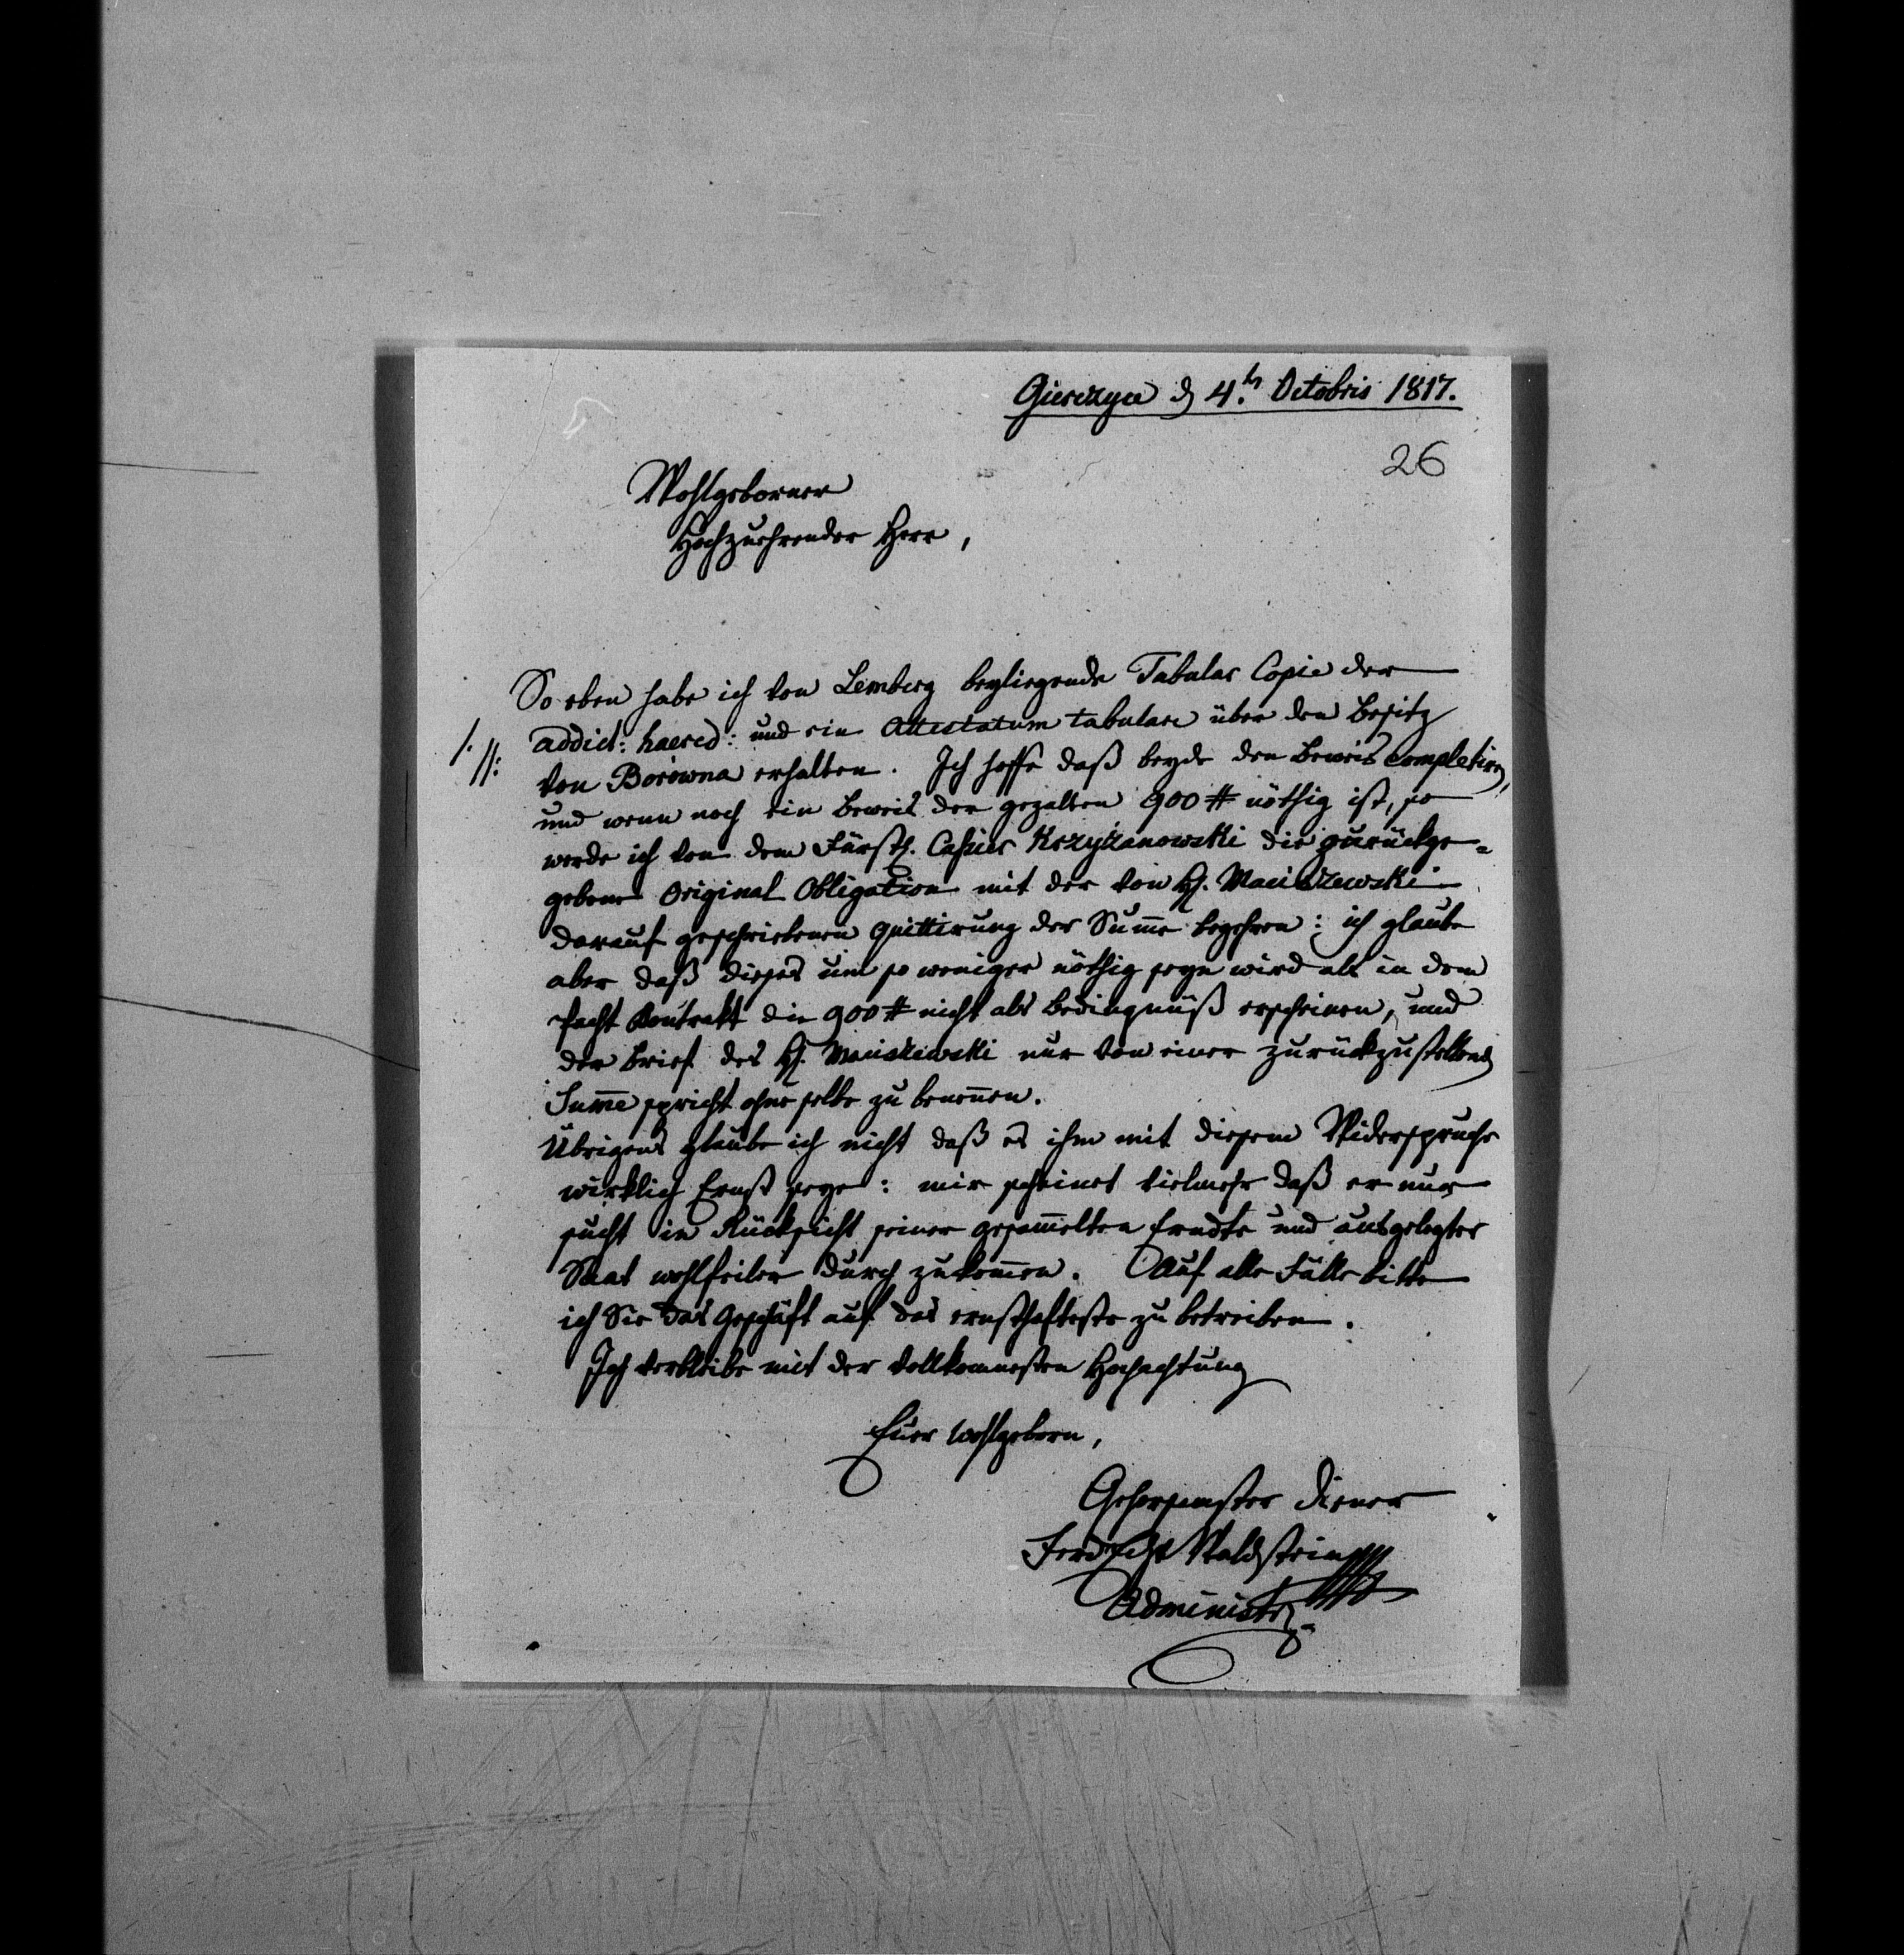 Gierczyce d 4.ten Octobris 1817.
26
Wohlgeborner
Hochzuehrender Herr,
So eben habe ich von Lemberg beyliegende Tabular Copie der
./. addict: haered: und ein Attestatum tabulare über den Besitz
//: von Borowna erhalten. Ich hoffe daß beyde den Beweis completiren,
und wenn noch ein Beweis der gezalten 900 # nöthig ist, so
werde ich von dem Fürstl. Cassier Krzyżanowski die zurückge=
gebene Original Obligation mit der von H. Maciszewski
darauf geschriebenen Quittirung der Sume begehren: ich glaube
aber daß dieses um so weniger nöthig seyn wird als in dem
Pacht Kontrakt die 900 # nicht als Bedingnüß erscheinen, und
der Brief des H. Maciszewski nur von einer zurückzustellend
Sume spricht ohne selbe zu benenen.
Übrigens glaube ich nicht daß es ihm mit diesem Widerspruche
wirklich Ernst seye: mir scheinet vielmehr daß er nur
sucht in Rücksicht seiner gesamelten Erndte und ausgelegter
Saat wohlfeiler durch zukomen. Auf alle Fälle bitte
ich Sie das Geschäft auf das ernsthafteste zu betreiben.
Ich verbleibe mit der vollkommesten Hochachtung
Euer Wohlgeborn,
Gehorsamster Diener
Ferd Waldstein
Administr